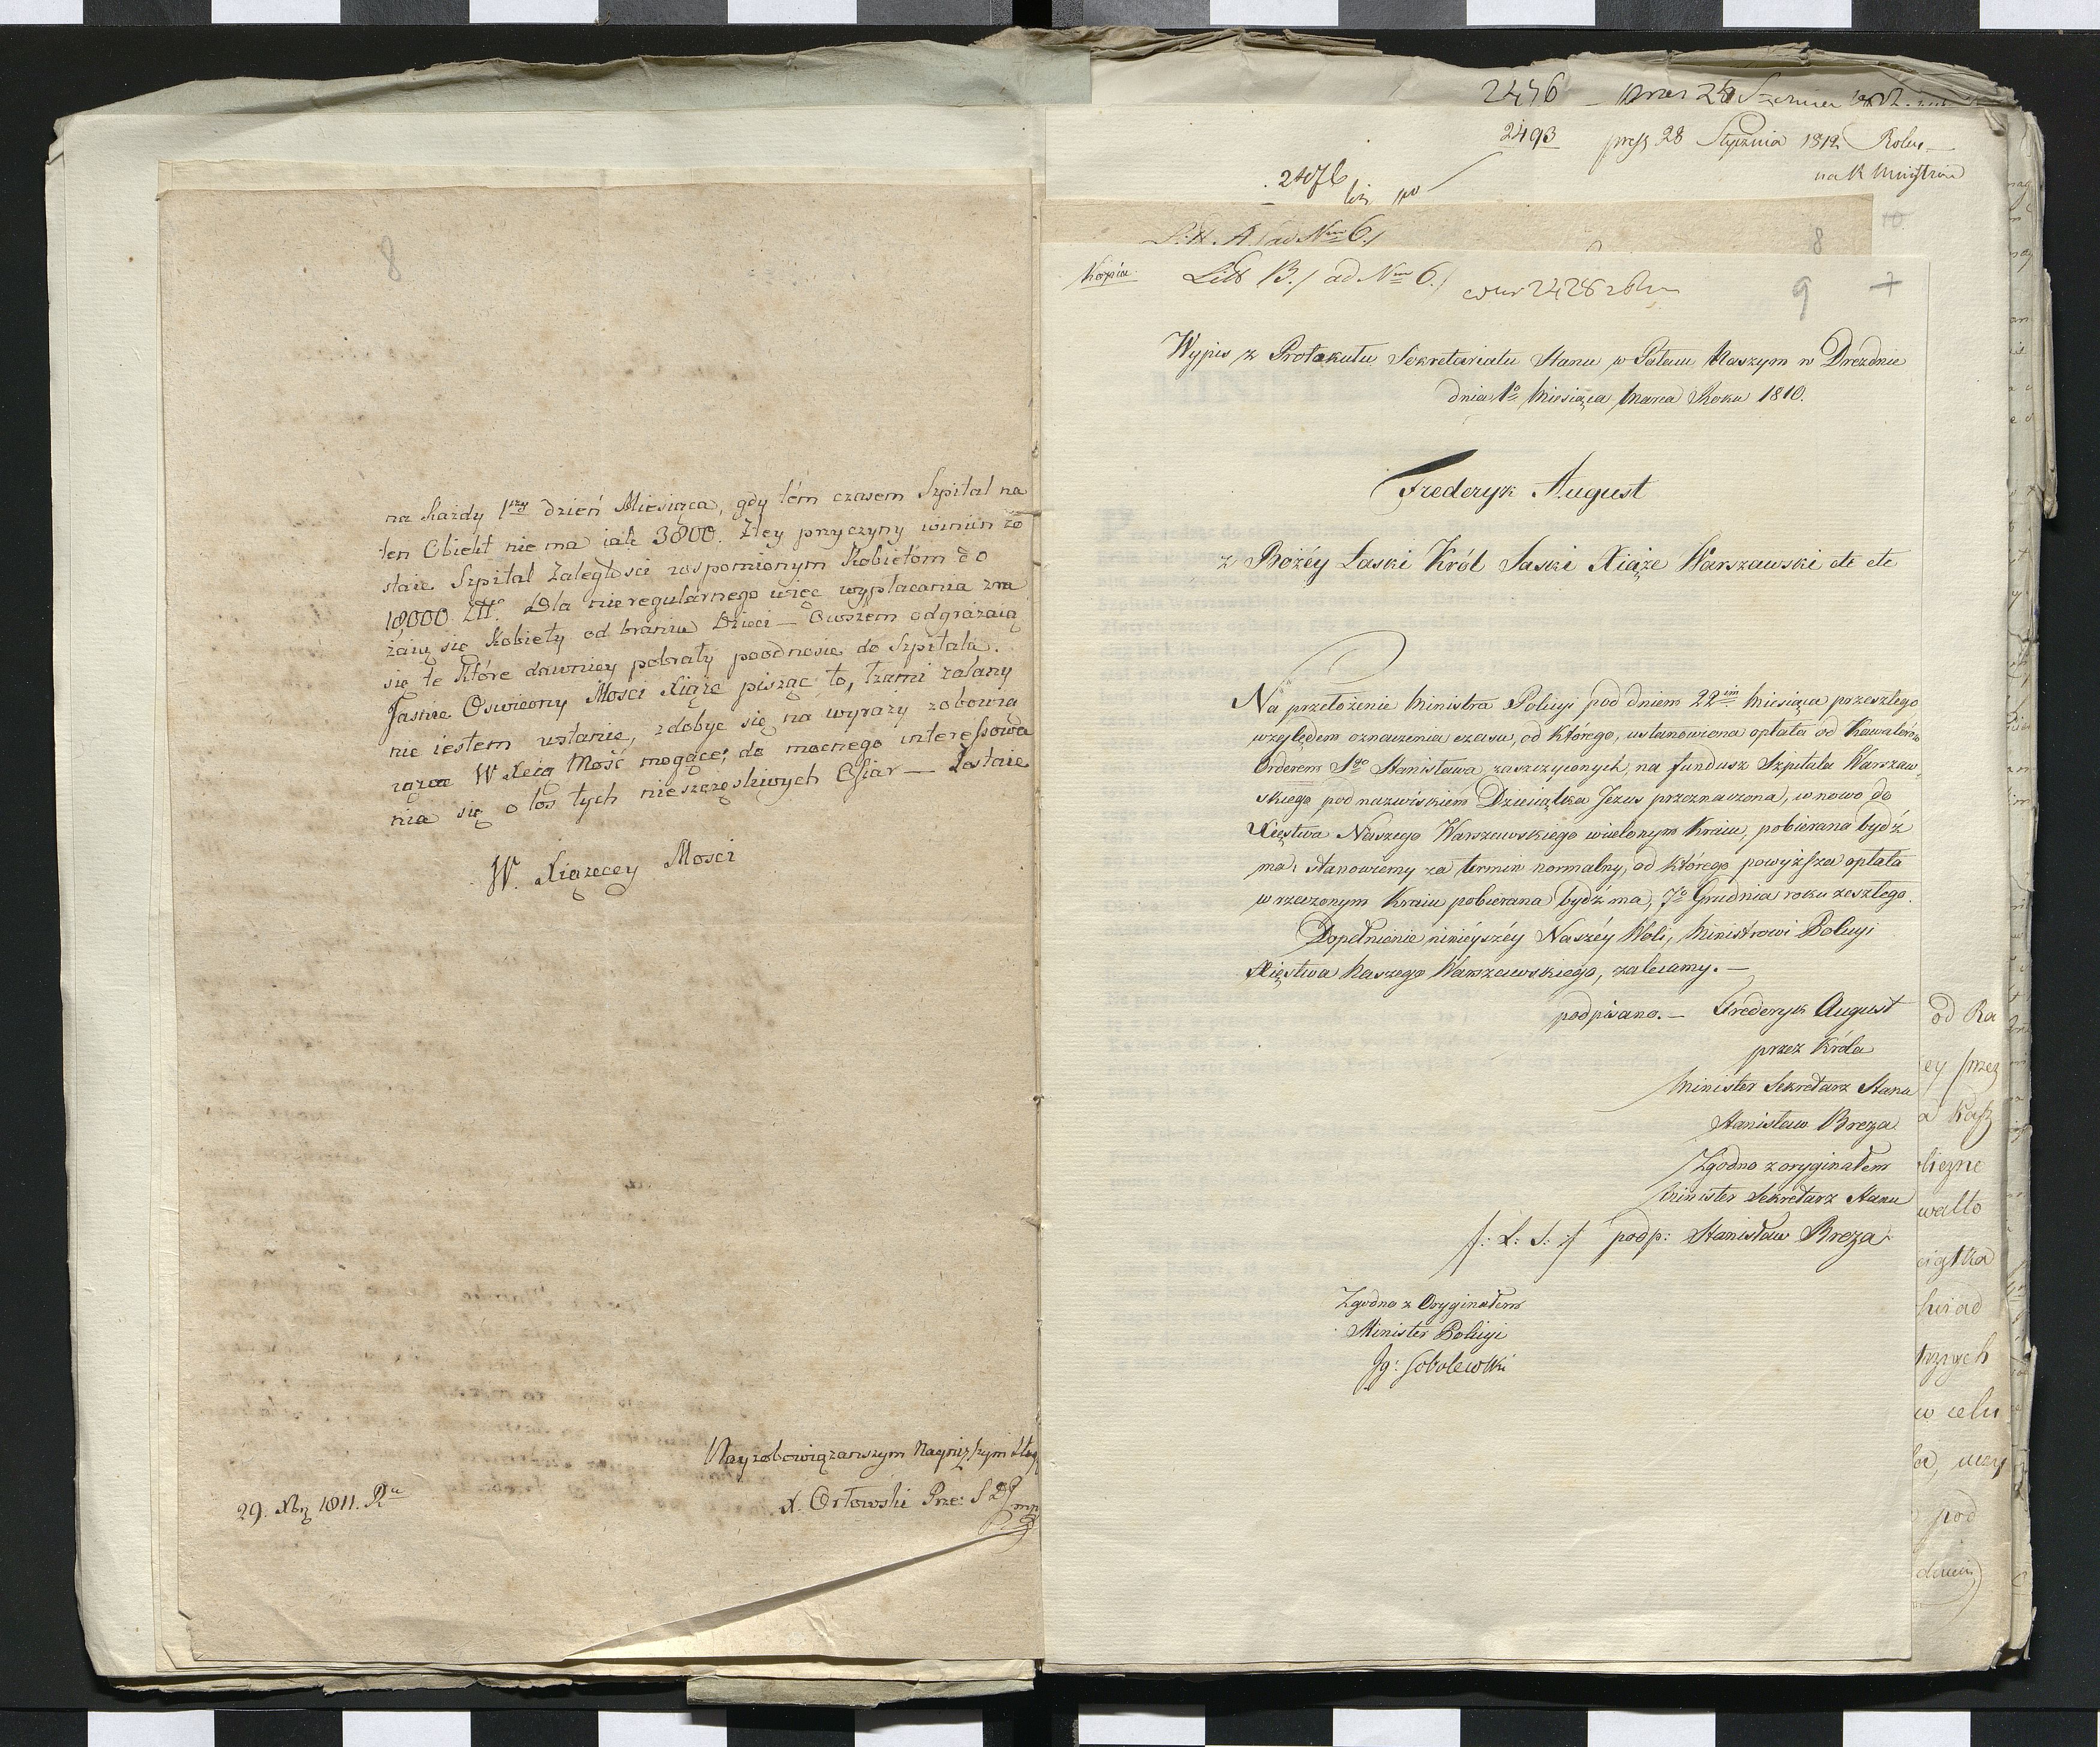 8
na każdy 1szy dzień Miesiąca, gdy tém czasem Szpital na
ten Obiekt nie ma iak 3800. Ztey przyczyny winien zo
staie Szpital Zaległosci wspomionym Kobietóm do
18,000 Złł. Dla nieregularnego więc wypłacania zra
żaią się Kobiety od brania Dzieci — Owszem odgrażaią
się te które dawniey pobrały poodnosić do Szpitala.
Jasnie Oswiecony Mosci Xiąże pisząc to, łzami zalany
nie iestem wstanie, zdobyc się na wyrazy zobowią
zące W Xcią Mość mogące; do mocnego interessowa
nia się o los tych nieszczęsliwych Ofiar — Zostaie
W. Xiązecey Mosci
Nayzobowiązanszym Nayniższym Sług
X. Orłowski Prze: S DJ mp
29. Xbr 1811. Ru
2476
2493 press 28 Stycznia 1812 Roku
na R Ministrów
2476
Litt. A. / ad Nrm 6./
8
10
Kopia Litt B./ ad Nrm 6./
9
7
Wypis z Protokułu Sekretariatu Stanu w Pałacu Naszym w Dreznie
dnia 1o Miesiąca Marca Roku 1810.
Frederyk August
z Bożéy Łaski Król Saski Xiąże Warszawski etc etc
Na przełożenie Ministra Policyi pod dniem 22im Miesiąca przeszłego
względem oznaczenia czasu, od którego, ustanowiona opłata od Kawalerów
Orderem Sgo Stanisława zaszczyconych, na fundusz Szpitala Warszaw
skiego pod nazwiskiem Dzieciątka Jezus przeznaczona, w nowo do
Xięstwa Naszego Warszawskiego wcielonym Kraiu, pobierana bydź
ma, stanowiemy za termin normalny, od którego powyższa opłata
w rzeczonym Kraiu pobierana bydź ma, 7o Grudnia roku zeszłego.
Dopełnienie ninieyszéy Naszéy Woli, Ministrowi Policyi
Xięstwa Naszego Warszawskiego, zalecamy. —
podpisano. — Frederyk August
przez Króla
Minister Sekretarz Stanu
Stanisław Breza
Zgodno z oryginałem
Minister Sekretarz Stanu
/: L: S: :/ podp: Stanisław Breza
Zgodno z Oryginałem
Minister Policyi
Jg: Sobolewski
od Ra
ey przez
a Kass
liczne
walto
ciątka
w celu
pod